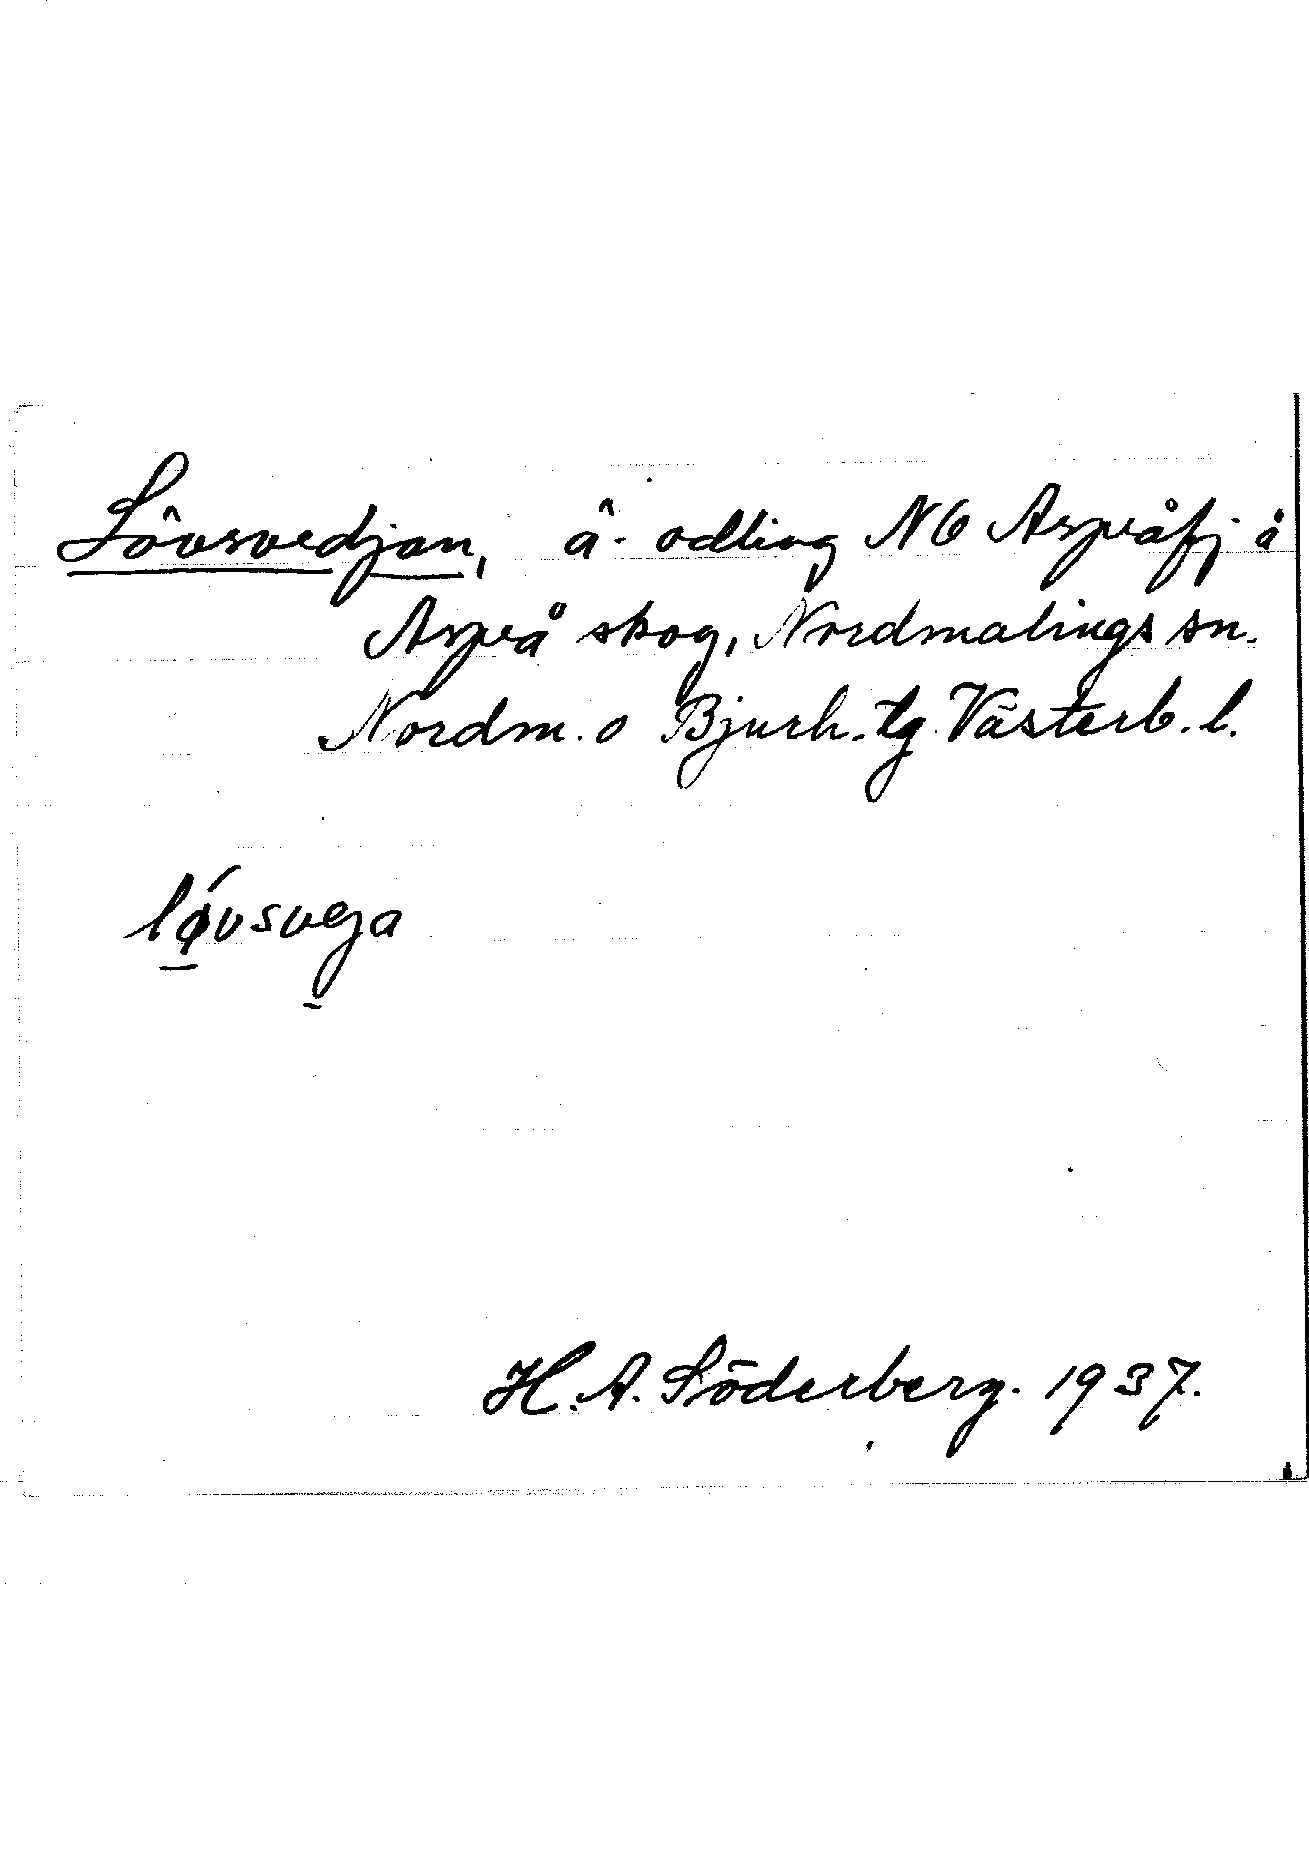 Lövsvedjan, ä. odling NO Aspeåfj å
Aspeå skog, Nordmalings sn.
Nordm. o Bjurh. tg Västerb. l.
lǿvsveja
H. A. Söderberg. 1937.